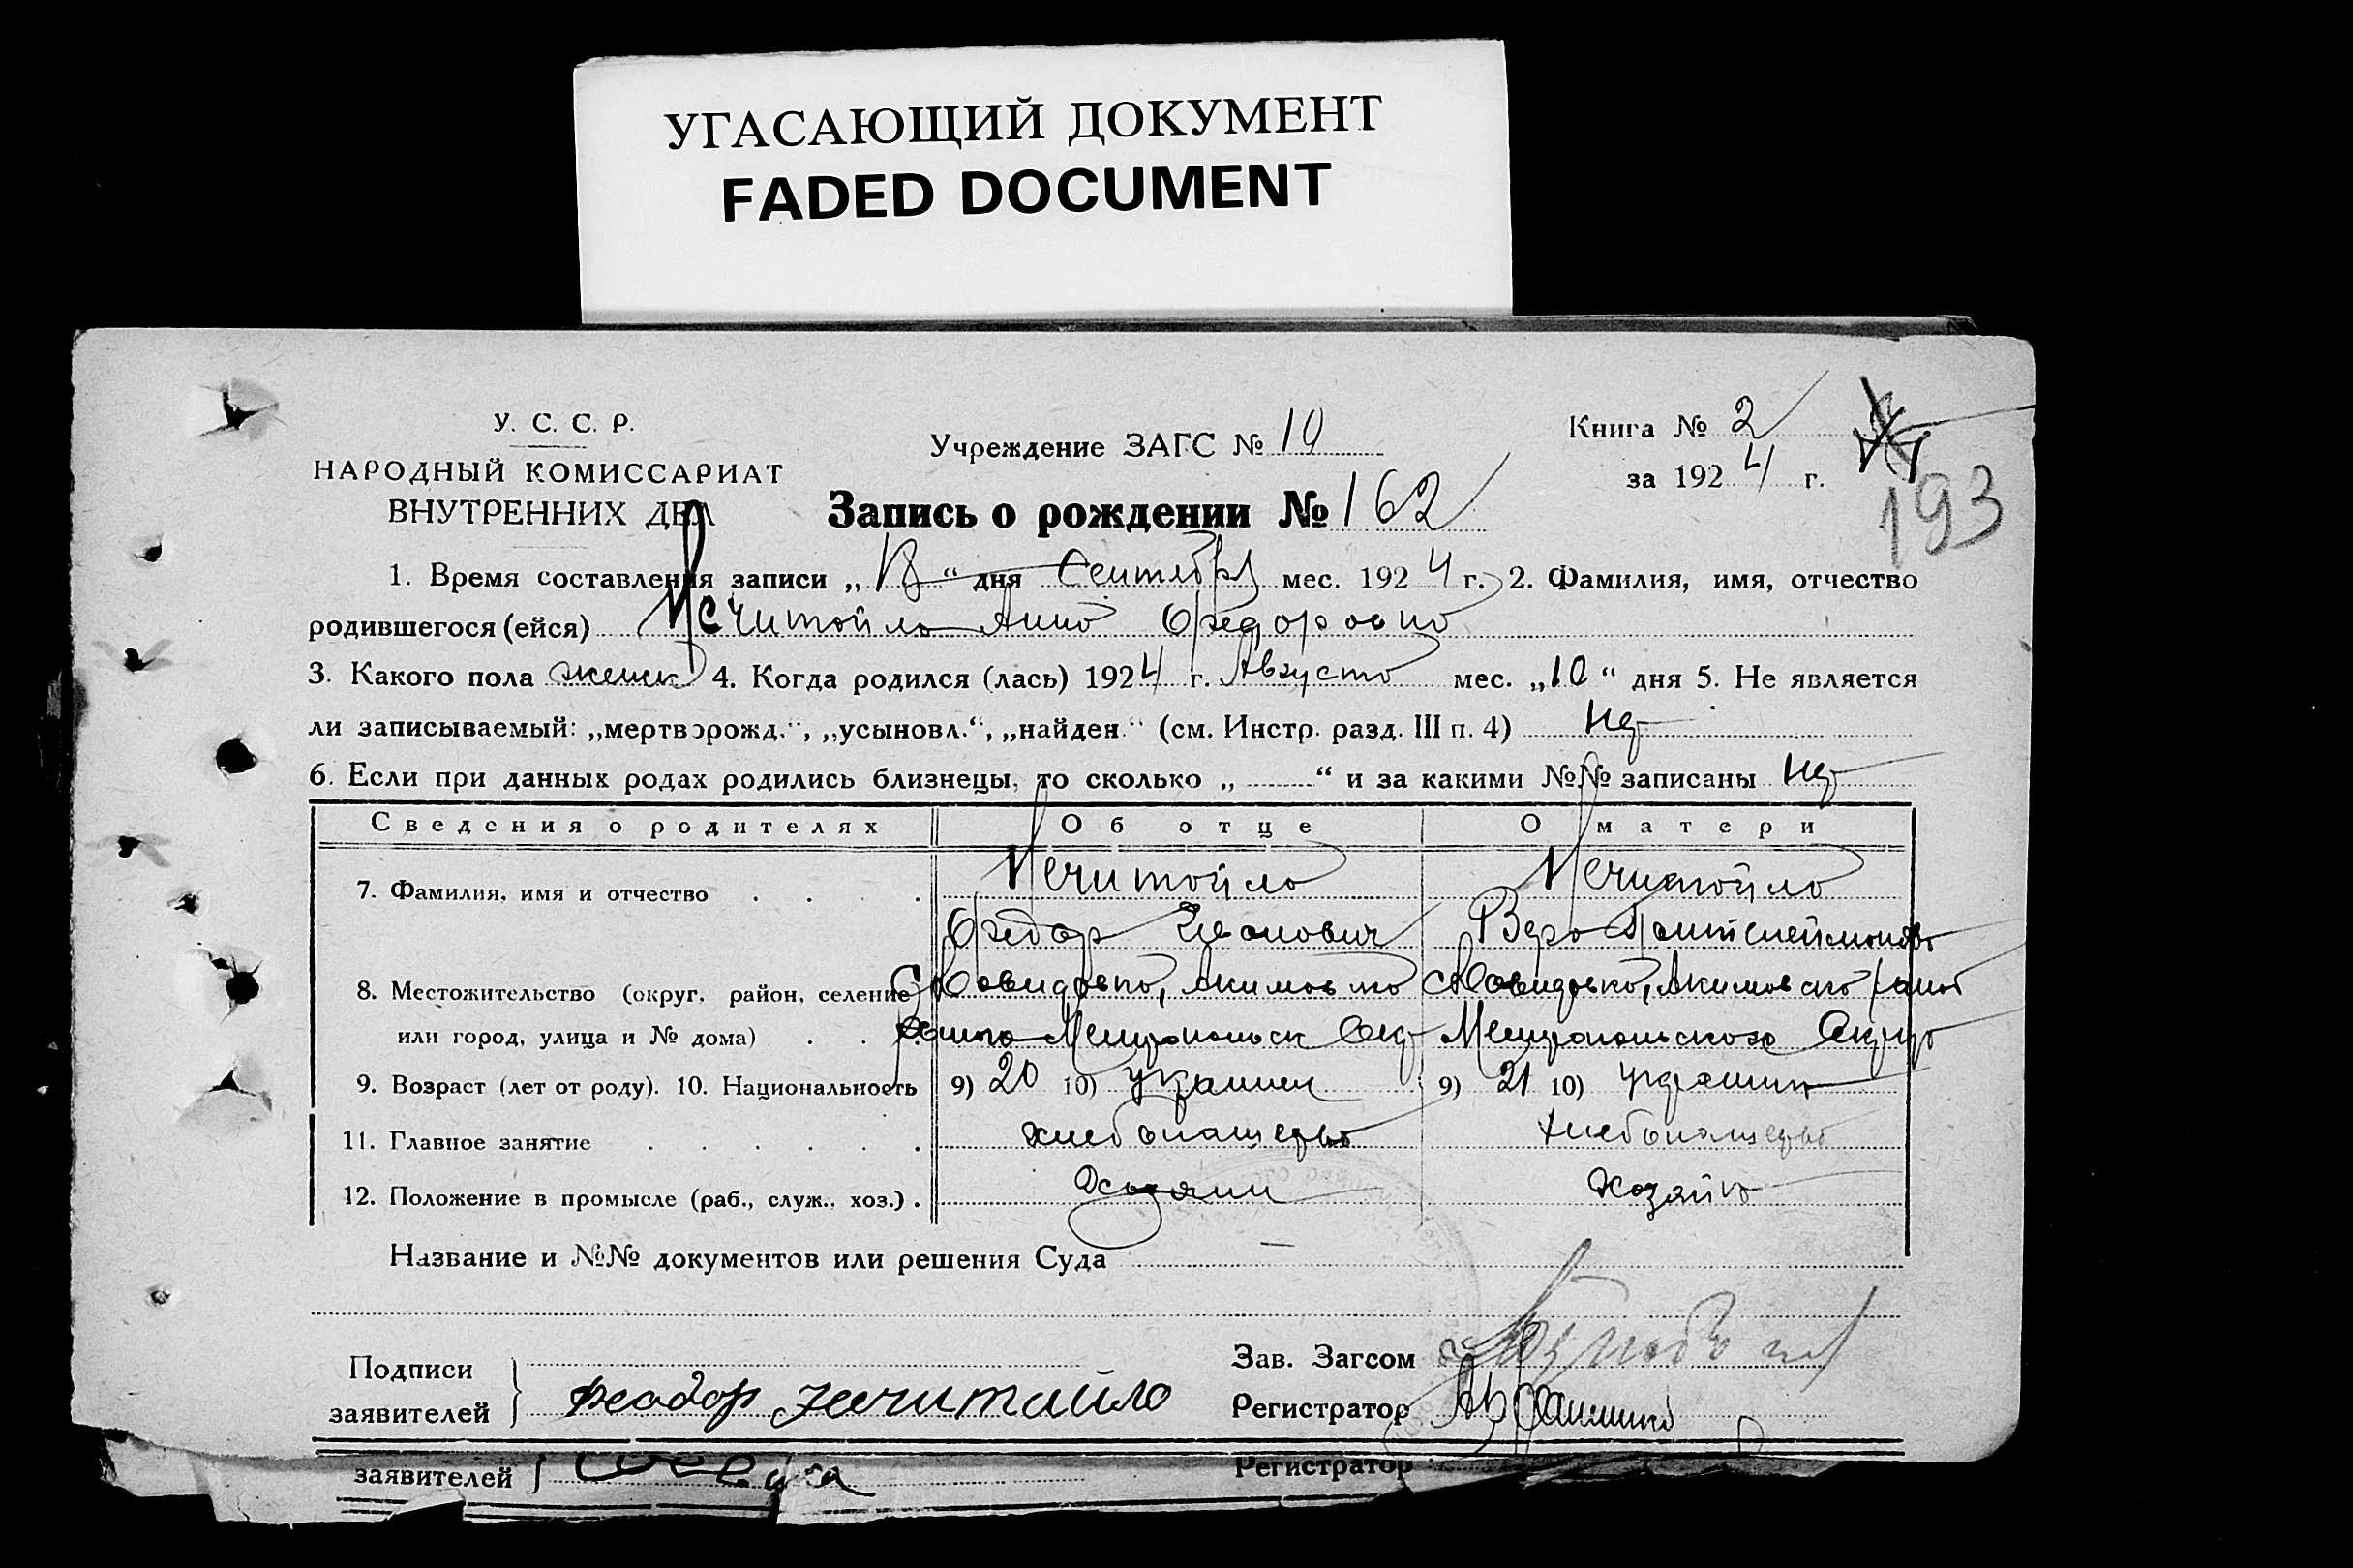 УГАСАЮЩИЙ ДОКУМЕНТ
FADED DOCUMENT
У. С. С. Р.
НАРОДНЫЙ КОМИССАРИАТ
ВНУТРЕННИХ ДЕЛ
Учреждение ЗАГС № 10
Книга № 2
за 1924 г.
193
Запись о рождении № 162
1. Время составления записи „ “ дня Сентября мес. 1924 г. 2. Фамилия, имя, отчество
родившегося (ейся) Нечитайло Анна Федоровна
3. Какого пола женск 4. Когда родился (лась) 1924 г. Августа мес. „10“ дня 5. Не является
ли записываемый: „мертворожд.“, „усыновл.“, „найден.“ (см. Инстр. разд. III п. 4) Нет
6. Если при данных родах родились близнецы, то сколько „ “ и за какими №№ записаны Нет
Сведения о родителях Об отце О матери
7. Фамилия, имя и отчество Нечитайло Нечитайло
Федор Иванович Вера Пантелеймоновна
8. Местожительство (округ, район, селение с. Давидовка, Акимовско с. Давидовка, Акимовско района
или город, улица и № дома) района Мелитопольск Окр Мелитопольского Округа
9. Возраст (лет от роду). 10. Национальность 9) 20 10) украинец 9) 21 10) украинка
11. Главное занятие хлебопашество хлебопашество
12. Положение в промысле (раб., служ., хоз.) хозяин хозяйка
Название и №№ документов или решения Суда —
Подписи
заявителей
Феодор Нечитайло
Зав. Загсом
Регистратор
заявителей
Регистратор